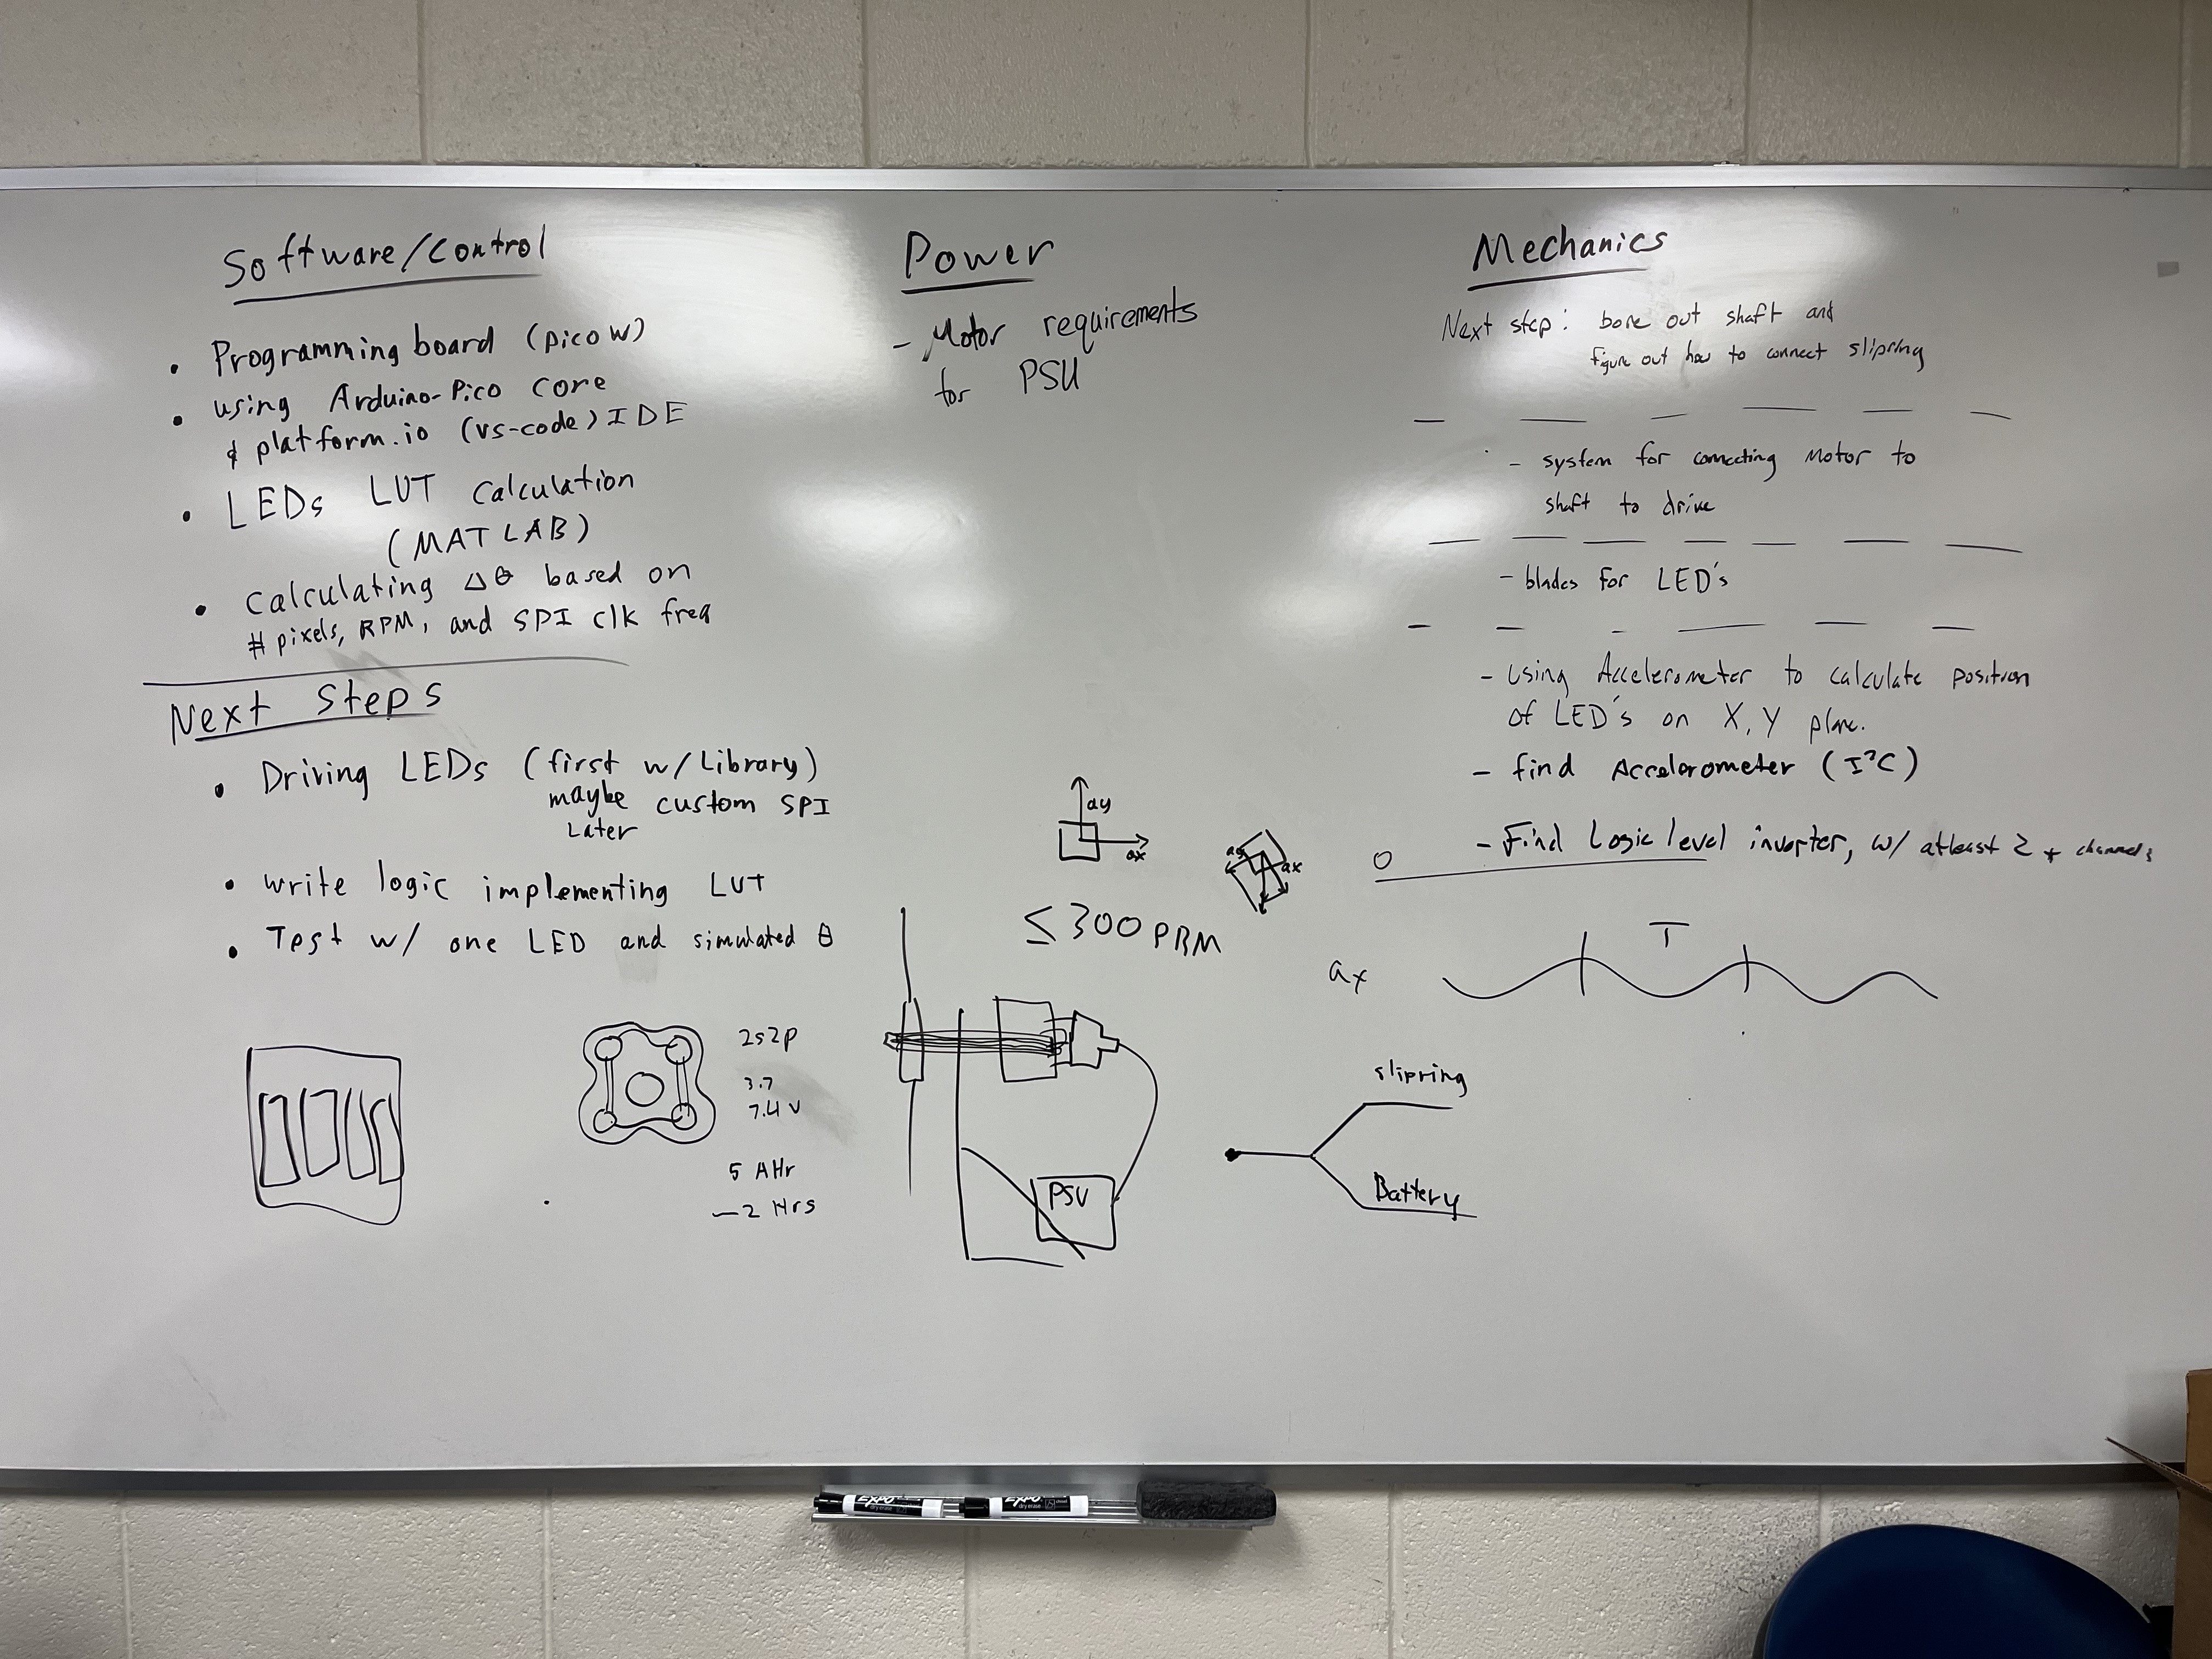 Software/Control
• Programming board (pico W)
• using Arduino-Pico core
& platform.io (vs-code) IDE
• LEDs LUT calculation
(MATLAB)
• calculating Δθ based on
# pixels, RPM, and SPI clk freq
Next Steps
• Driving LEDs (first w/ Library)
maybe custom SPI
Later
• write logic implementing LUT
• Test w/ one LED and simulated θ
2s2p
3.7
7.4 V
5 AHr
~2 Hrs
Power
- Motor requirements
for PSU
ay
ax
ay
ax
≤ 300 PRM
PSU
Mechanics
Next step: bore out shaft and
figure out how to connect slipring
- system for connecting Motor to
shaft to drive
- blades for LED's
- Using Accelerometer to calculate position
of LED's on X, Y plane.
- find Accelerometer (I²C)
- Find Logic level inverter, w/ atleast 2 + channels
ax
T
slipring
Battery
EXPO
dry erase
EXPO
dry erase